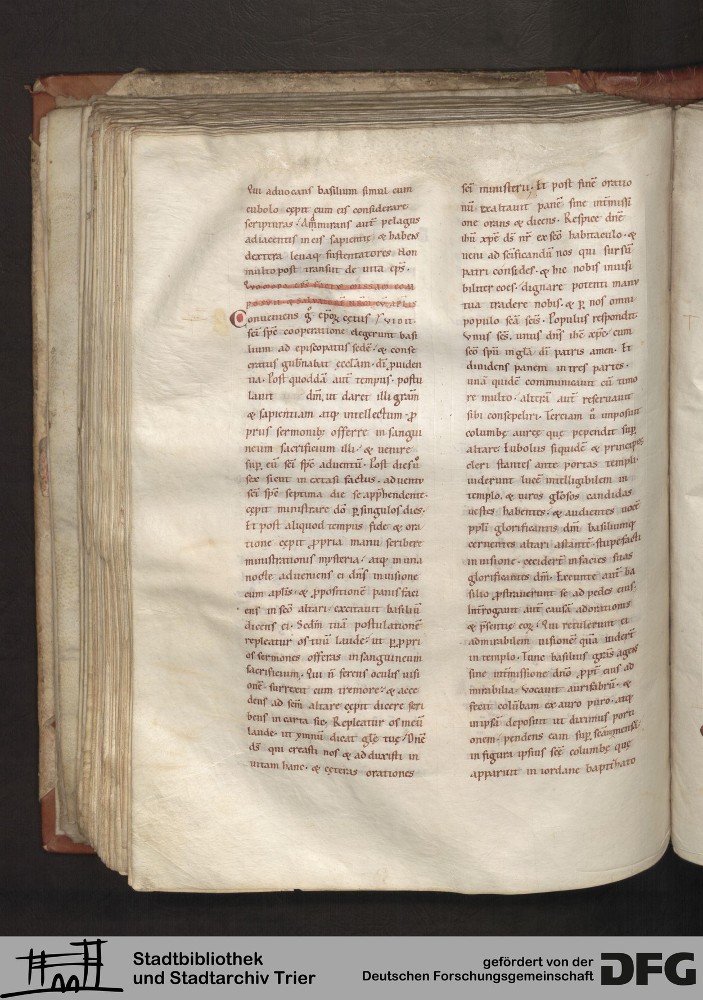 Qui aduocans basilium simul cum
eubolo cepit cum eis considerare
scripturas. Ammirans aut pelagus
adiacentis in eis sapientie & habens
dextera leuaq sustentatores Non
multo post transiit de uita eps.
Conueniens g cetus
sci spc cooperatione elegerunt basi
lium ad episcopatus sede. & conse
cratus gubnabat ecclam. di puiden
tia. Post quodda aut tempus. postu
lauit dm. ut daret illi gram
& sapientiam atq intellectum. p
prus sermonib offerre in sangui
neum sacrificium illi. & uenire
sup eu sci spc aduentu. Post dies u
sex sicut in extasi factus. aduentu
sci spc septima die se apphendente.
cepit ministrare do p singulos dies.
Et post aliquod tempus fide & ora
tione cepit ppria manu scribere
ministrationis mysteria. atq in una
nocte adueniens ei dns in uisione
cum aplis. & ppositione panis faci
ens in sco altari. excitauit basiliu
dicens ei. Scdm tua postulatione
repleatur os tuu laude. ut p ppri
os sermones offeras in sanguineum
sacrificium. Qui n ferens oculis uisi
one surrexit cum tremore. & acce
dens ad scm altare cepit dicere scri
bens in carta sic. Repleatur os meu
laude. ut ymnu dicat gle tue. Dne
ds qui creasti nos & adduxisti in
uitam hanc. & ceteras orationes
sci ministerii. Et post fine oratio
nu exaltauit pane sine intmissi
one orans & dicens. Respice dne
ihu xpe ds nr ex sco habitaculo. &
ueni ad scificandu nos qui sursu
patri consides. & hic nobis inuisi
biliter coes. dignare potenti manu
tua tradere nobis. & p nos omni
populo sca scis. Populus respondit.
Vnus scs. unus dns ihc xpc. cum
sco spu in gla di patris amen. Et
diuidens panem in tres partes.
una quide communicauit cu timo
re multo. altera aut reseruauit
sibi consepeliri. Terciam u imposuit
columbe auree que pependit sup
altare. Eubolus siquide & principes
cleri stantes ante portas templi.
uiderunt luce intelligibilem in
templo. & uiros gliosos candidas
uestes habentes. & audientes uoce
ppli glorificantis dm. basiliumq
cernentes altari astante. stupefacti
in uisione. cecidert in facies suas
glorificantes dm. Exeunte aut ba
silio pstrauerunt se ad pedes eius.
Intrrogauit aut causa adorationis
& psentie eor. Qui retulerunt ei
admirabilem uisione qua uidert
in templo. Tunc basilius gras agens
sine intmissione dno ppt eius ad
mirabilia. uocauit aurifabru. &
fecit coluba ex auro puro. atq
in ipsa deposuit ut diximus porti
onem. pendens eam sup sca mensa
in figura ipsius sce columbe que
apparuit in iordane baptizato
Stadtbibliothek
und Stadtarchiv Trier
gefördert von der
Deutschen Forschungsgemeinschaft
DFG